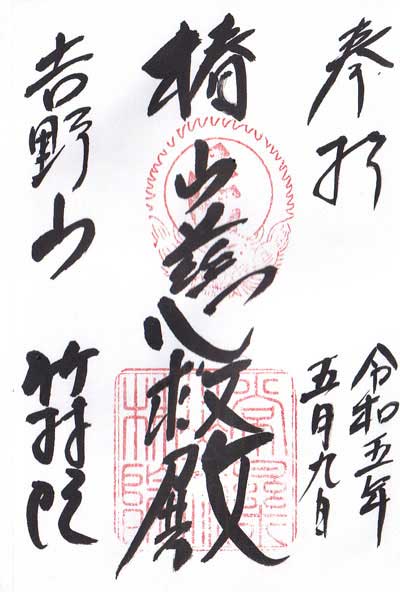 奉拝
令和五年
五月九日
椿山慈救殿
吉野山
竹林院